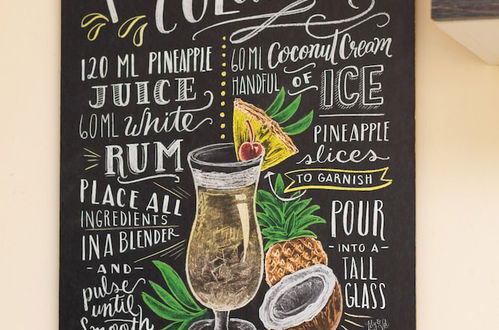 COLA
120 ML PINEAPPLE
JUICE
60 ML White
RUM
PLACE ALL
INGREDIENTS
IN A BLENDER
- AND -
pulse
until
Smooth
60 ML Coconut Cream
HANDFUL OF
ICE
PINEAPPLE
slices
TO GARNISH
POUR
- INTO A -
TALL
GLASS